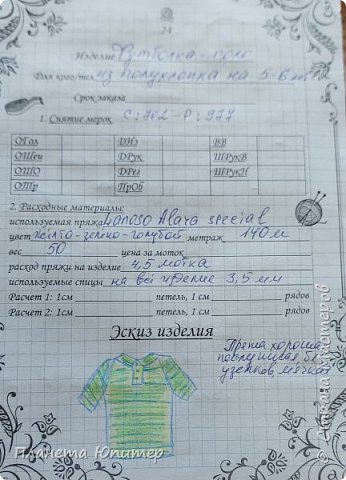 24
Изделие Футболка-поло
Для кого/тел из полухлопка на 5-6 лет
Срок заказа
1. Снятие мерок С:702-Р:977
ОГол ДИз ВВ
ОШеи ДРук ШРукВ
ОШО ДРег ШРукН
ОТр ПрОб
2. Расходные материалы:
используемая пряжа Lanoso Alara special
цвет желто-зелено-голубой метраж 140 м
вес 50 цена за моток
расход пряжи на изделие 4,5 мотка
используемые спицы на всё изделие 3,5 мм
Расчет 1: 1см петель, 1 см рядов
Расчет 2: 1см петель, 1 см рядов
Эскиз изделия
Пряжа хорошая
послушная, без
узелков, мягкая
Планета Юпитер
© Страна Мастеров